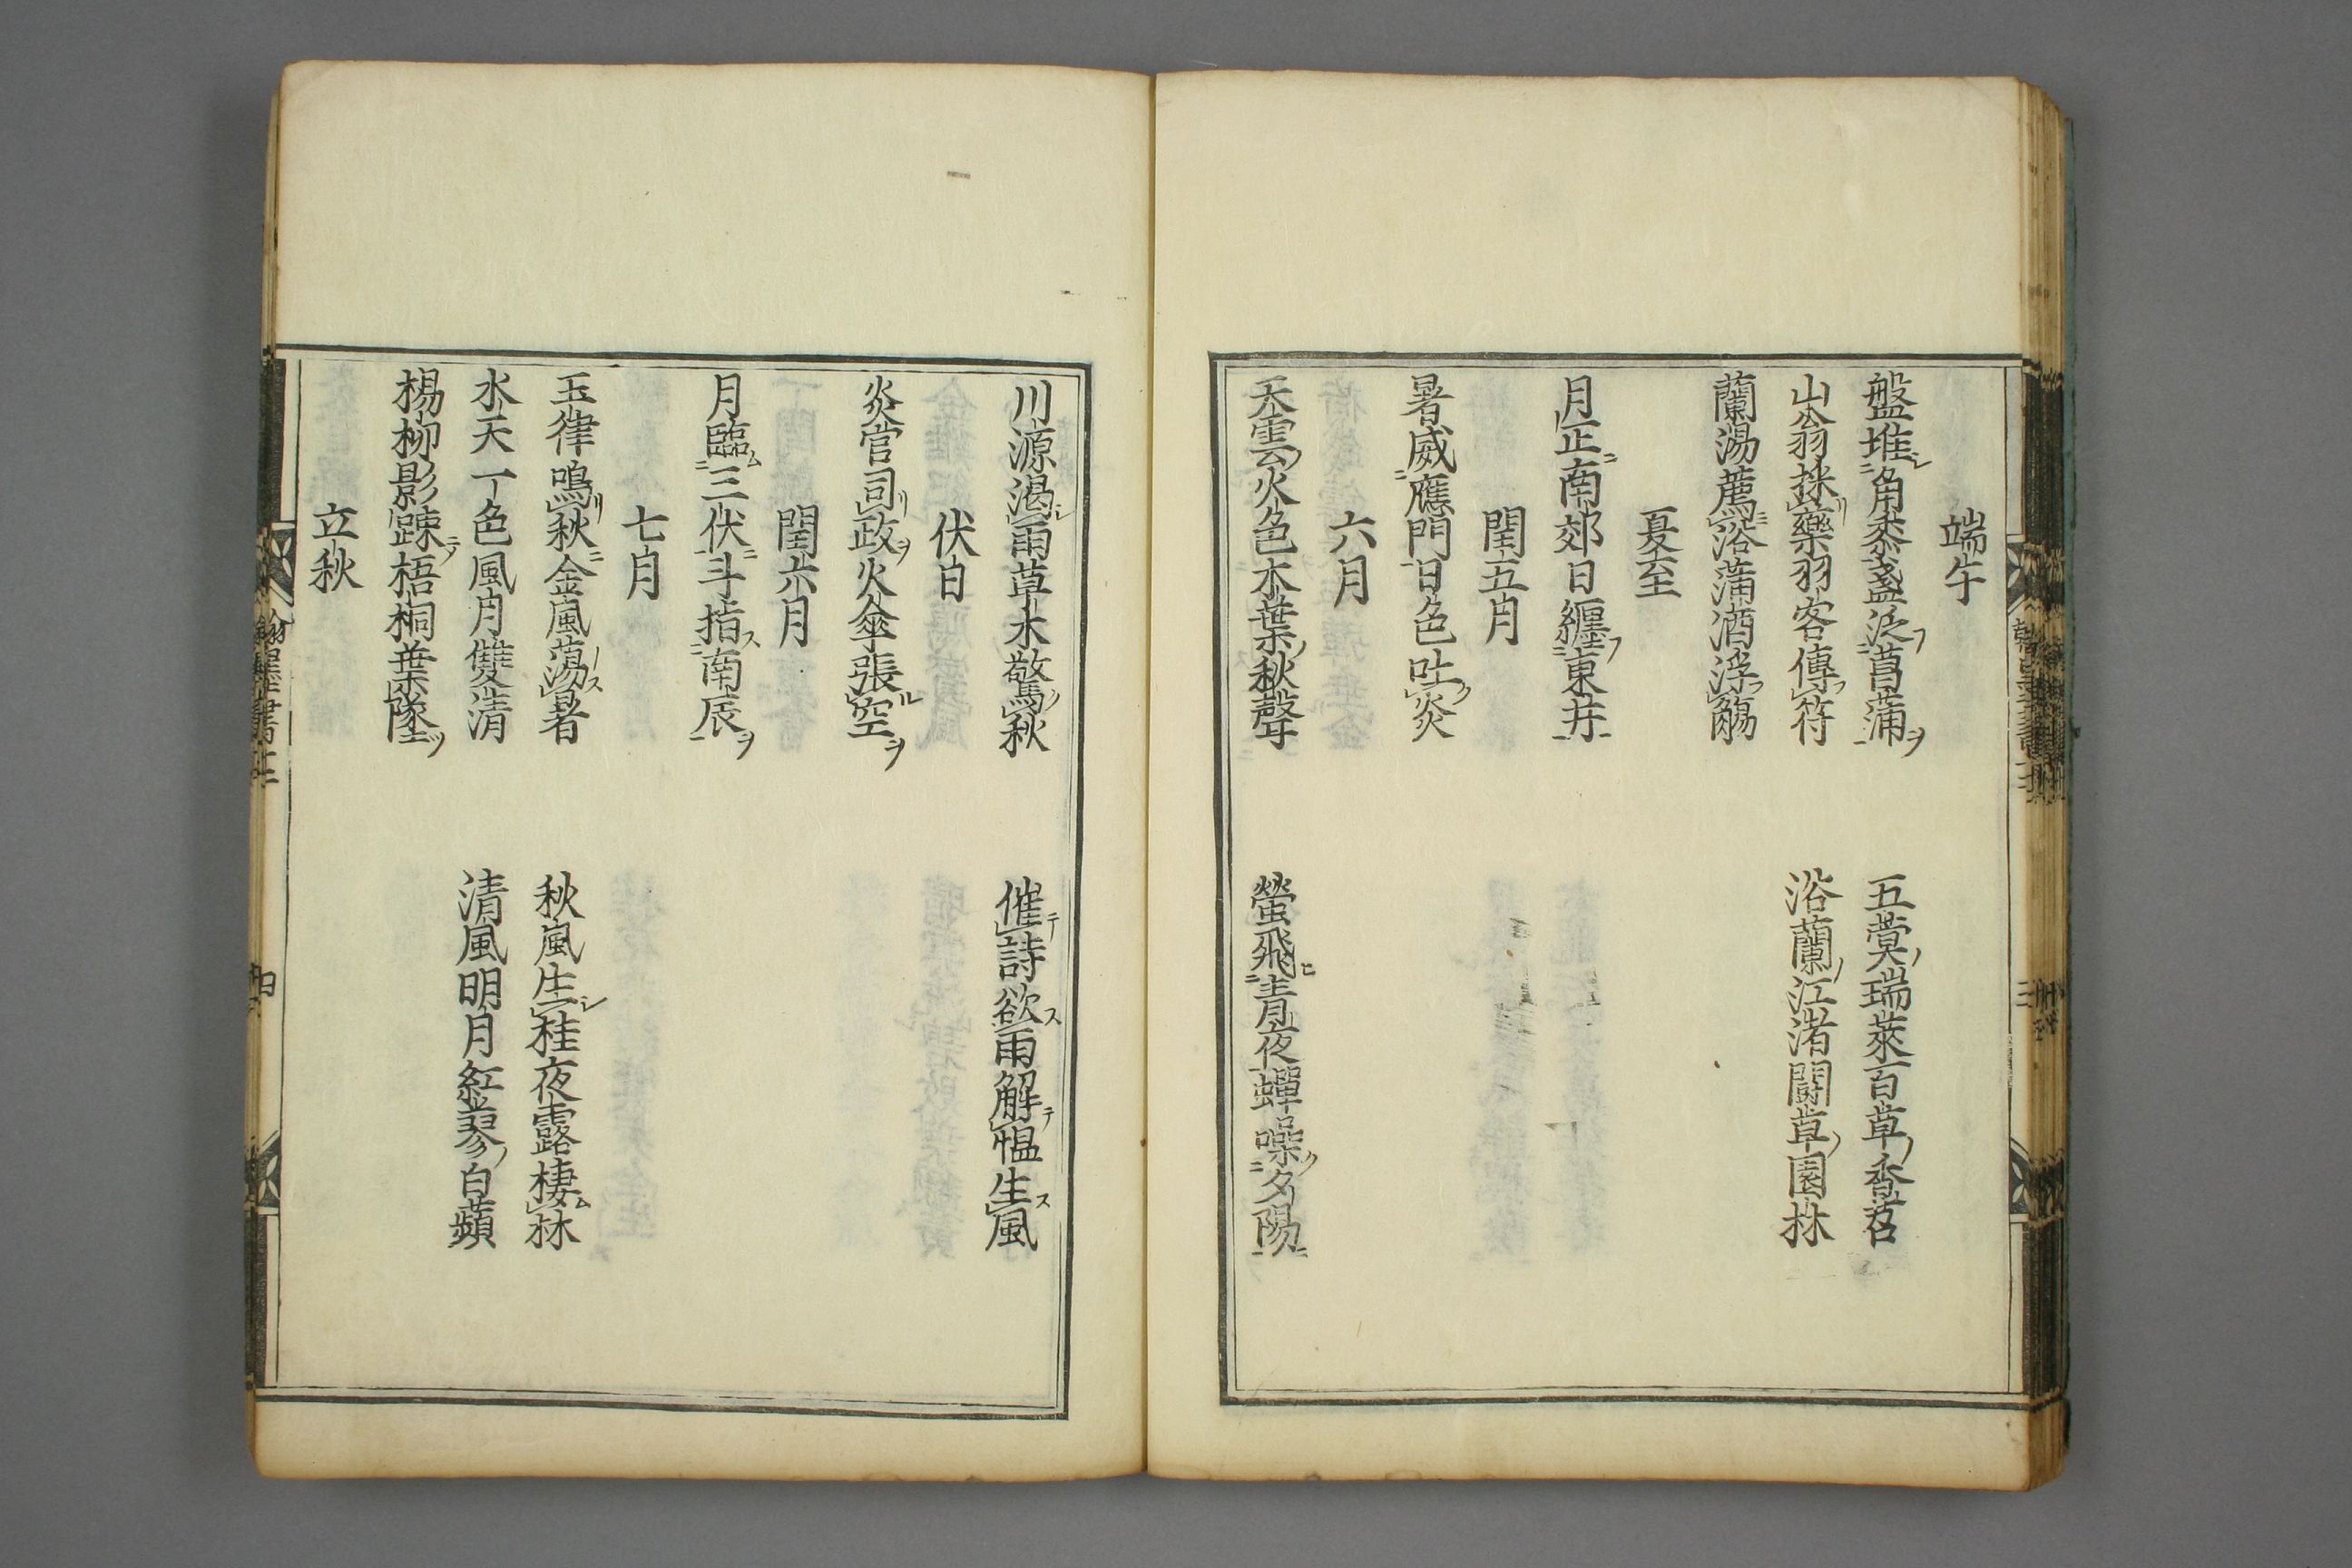 端午
盤堆角黍盞泛菖蒲　五蓂瑞莢百草香苕
山翁採藥羽客傳符　浴蘭江渚鬪草園林
蘭湯薦浴蒲酒浮觴
夏至
月正南郊日纏東井
閏五月
暑威應門日色吐炎
六月
天雲火色木葉秋聲　螢飛青夜蟬噪夕陽
川源渇雨草木驚秋　催詩欲雨解慍生風
伏日
炎官司政火傘張空
閏六月
月臨三伏斗指南辰
七月
玉律鳴秋金風蕩暑　秋風生桂夜露棲林
水天一色風月雙清　清風明月紅蓼白蘋
楊柳影踈梧桐葉墜
立秋